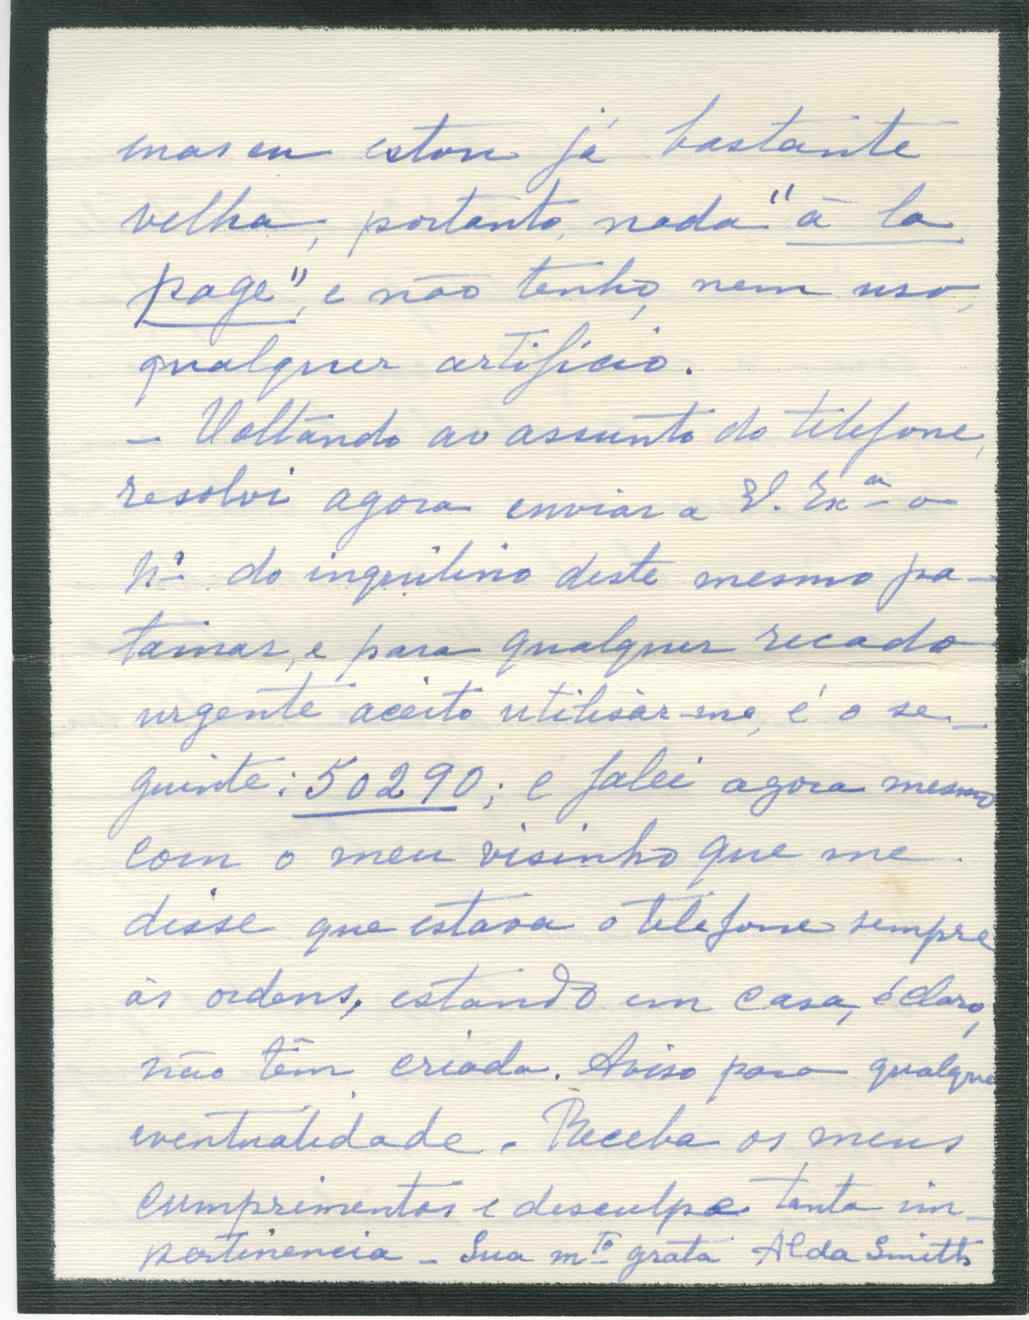 mas eu estou já bastante
velha, portanto, nada "à la
page", e não tenho, nem uso,
qualquer artifício.
— Voltando ao assunto do telefone,
resolvi agora enviar a V. Exª o
Nº do inquilino deste mesmo pa-
tamar, e para qualquer recado
urgente aceito utilisar-me, é o se-
guinte: 50290; e falei agora mesmo
com o meu visinho que me
disse que estava o telefone sempre
às ordens, estando em casa, é claro,
não têm criada. Aviso para qualquer
eventualidade. Receba os meus
cumprimentos e desculpe tanta im-
pertinencia — Sua mto grata Alda Smith